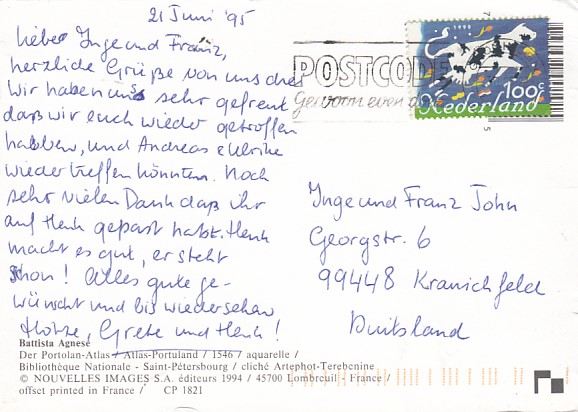 21 Juni '95
lieber Inge und Franz,
herzliche Grüße von uns drei
Wir haben uns sehr gefreut
daß wir euch wieder getroffen
habben, und Andreas & Ulrike
wieder treffen könnten. Noch
sehr vielen Dank daß ihr
auf Henk gepast habt. Henk
macht es gut, er steht
schon! Alles gute ge-
wünscht und bis wiedersehan
Grete und Henk!
POSTCODE
Gewoon even
100c
Nederland
Inge und Franz John
Georgstr. 6
99448 Kranichfeld
Duitsland
Battista Agnese
Der Portolan-Atlas / Atlas-Portuland / 1546 / aquarelle /
Bibliothèque Nationale - Saint-Pétersbourg / cliché Artephot-Terebenine
© NOUVELLES IMAGES S.A. éditeurs 1994 / 45700 Lombreuil - France /
offset printed in France / CP 1821